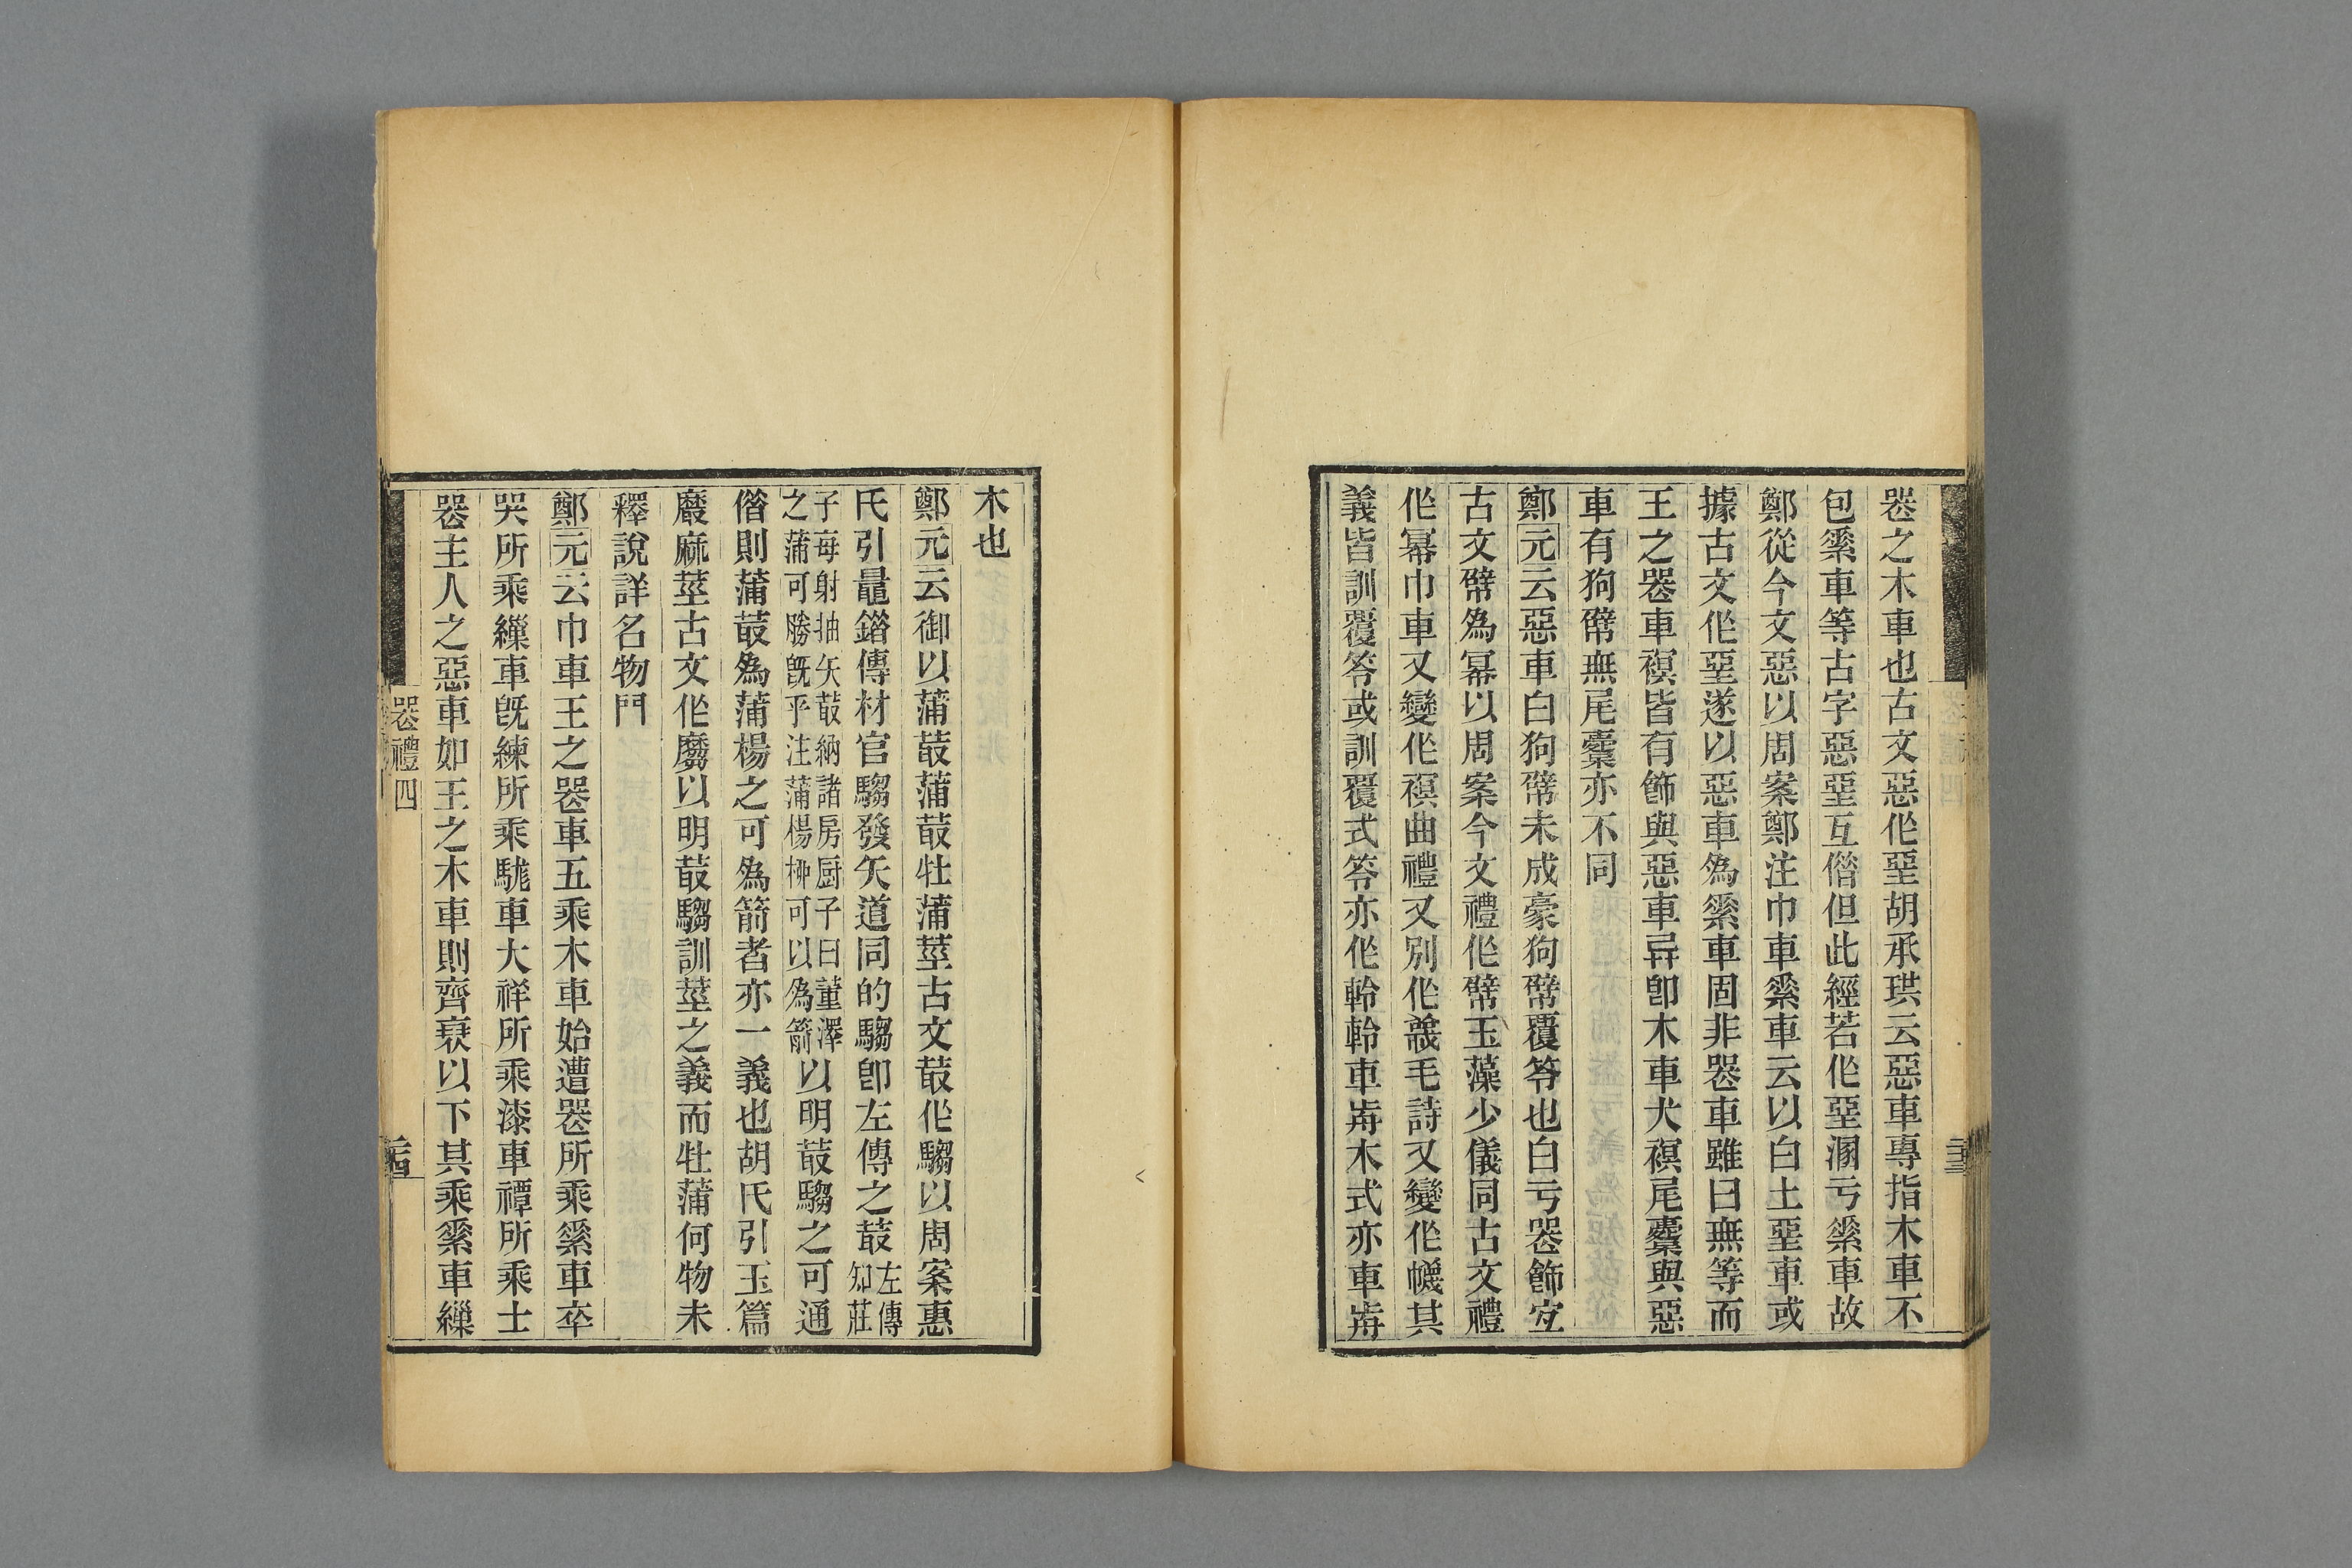 喪之木車也古文惡作堊胡承珙云惡車專指木車不
包素車等古字惡堊互借但此經若作堊溷亏素車故
鄭從今文惡以周案鄭注巾車素車云以白土堊車或
據古文作堊遂以惡車為素車固非喪車雖曰無等而
王之喪車𧜀皆有飾與惡車異卽木車犬𧜀尾櫜與惡
車有狗幦無尾櫜亦不同
鄭元云惡車白狗幦未成豪狗幦覆笭也白亏喪飾宜
古文幦為冪以周案今文禮作幦玉藻少儀同古文禮
作冪巾車又變作𧜀曲禮又別作簚毛詩又變作幭其
義皆訓覆笭或訓覆式笭亦作軨軨車前木式亦車前
木也
鄭元云御以蒲菆蒲菆牡蒲莖古文菆作騶以周案惠
氏引鼂錯傳材官騶發矢道同的騶卽左傳之菆左傳知莊
子每射抽矢菆納諸房厨子曰董澤之蒲可勝旣乎注蒲楊柳可以為箭以明菆騶之可通
借則蒲菆為蒲楊之可為箭者亦一義也胡氏引玉篇
黀麻莖古文作黀以明菆騶訓莖之義而牡蒲何物未
釋說詳名物門
鄭元云巾車王之喪車五乘木車始遭喪所乘素車卒
哭所乘繅車旣練所乘駹車大祥所乘漆車禫所乘士
喪主人之惡車如王之木車則齊衰以下其乘素車繅
喪禮四